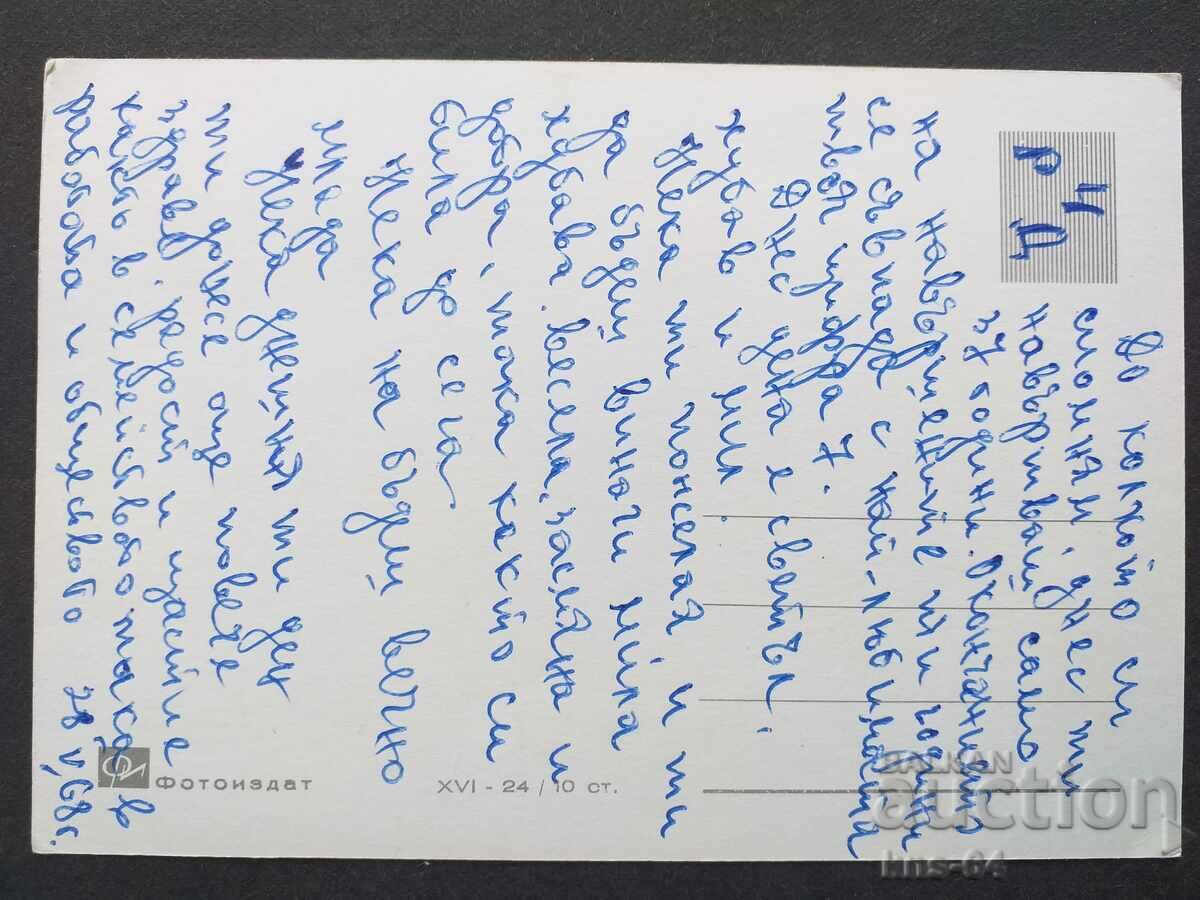 РЧД
До колкото си
спомням, днес ти
навършваш само
37 години. Окончанието
на навършените ти години
се съвпада с най-любимата
твоя цифра 7.
Днес деня е светъл,
хубав и мил.
Нека ти пожелая и ти
да бъдеш винаги мила
хубава, весела, засмяна и
добра, така както си
била до сега
Нека на бъдеш вечно
млада
Нека днешня ти ден
ти донесе още повече
здраве, радост и щастие
както в семейството така в
работата и обществото 28 V, 68 г.
Фотоиздат
XVI - 24 / 10 ст.
BALKAN
auction
kns-64